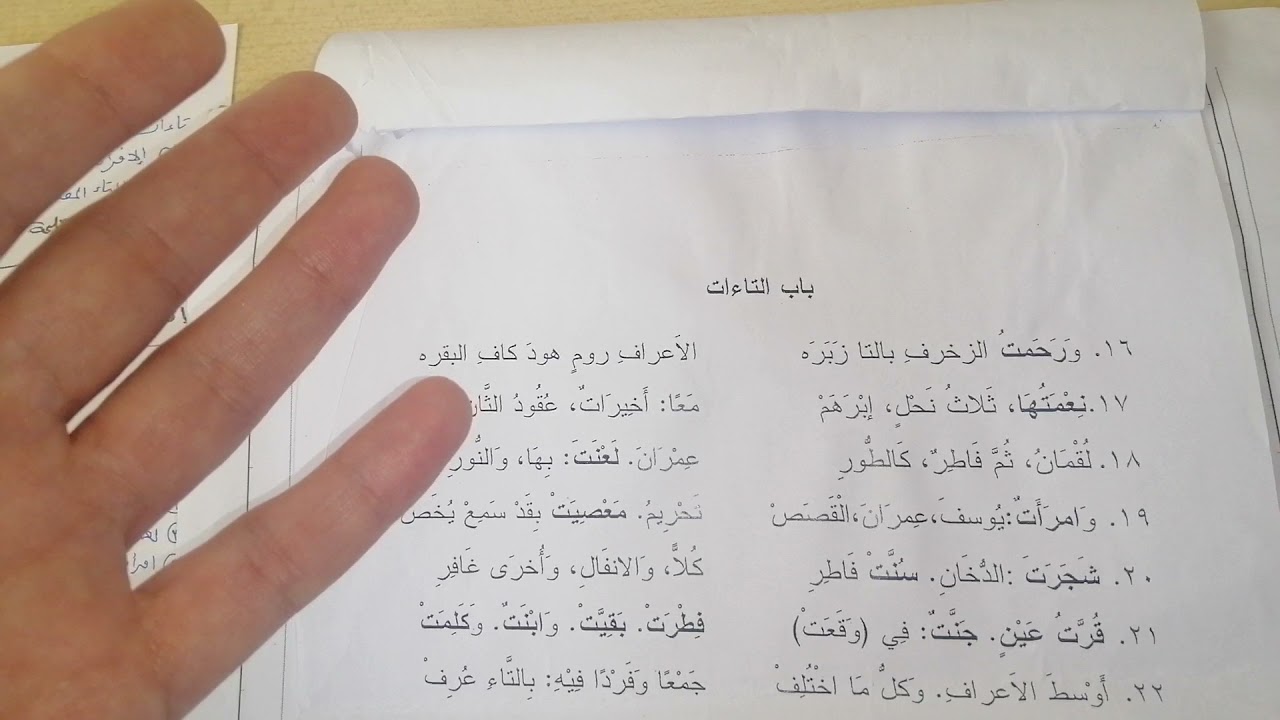 باب التاءات
١٦. وَرَحَمتُ الزخرفِ بالتا زَبَرَه الاَعرافِ رومٍ هودَ كافِ البقره
١٧.نِعْمَتُهَا، ثَلاثُ نَحْلٍ، إبْرَهَمْ مَعًا: أَخِيرَاتٌ، عُقُودُ
١٨. لُقْمَانُ، ثُمَّ فَاطِرٌ، كَالطُّورِ عِمْرَانَ. لَعْنَتَ: بِهَا، وَالنُّورِ
١٩. وَامرَأَتٌ:يُوسفَ،عِمرَانَ،الْقَصَصْ تَحْرِيمُ. مَعْصِيَتْ بِقَدْ سَمِعْ يُخَصْ
٢٠. شَجَرَتَ :الدُّخَانِ. سُنَّتْ فَاطِرِ كُلاًّ، وَالانفَالِ، وَأُخرَى غَافِرِ
٢١. قُرَّتُ عَيْنٍ. جَنَّتٌ: فِي (وَقَعَت) فِطْرَتْ. بَقِيَّتْ. وَابْنَتٌ. وَكَلِمَتْ
٢٢. أَوْسطَ الاَعرافِ. وَكلُّ مَا اخْتُلِفْ جَمْعًا وَفَرْدًا فِيْهِ: بِالتَّاءِ عُرِفْ